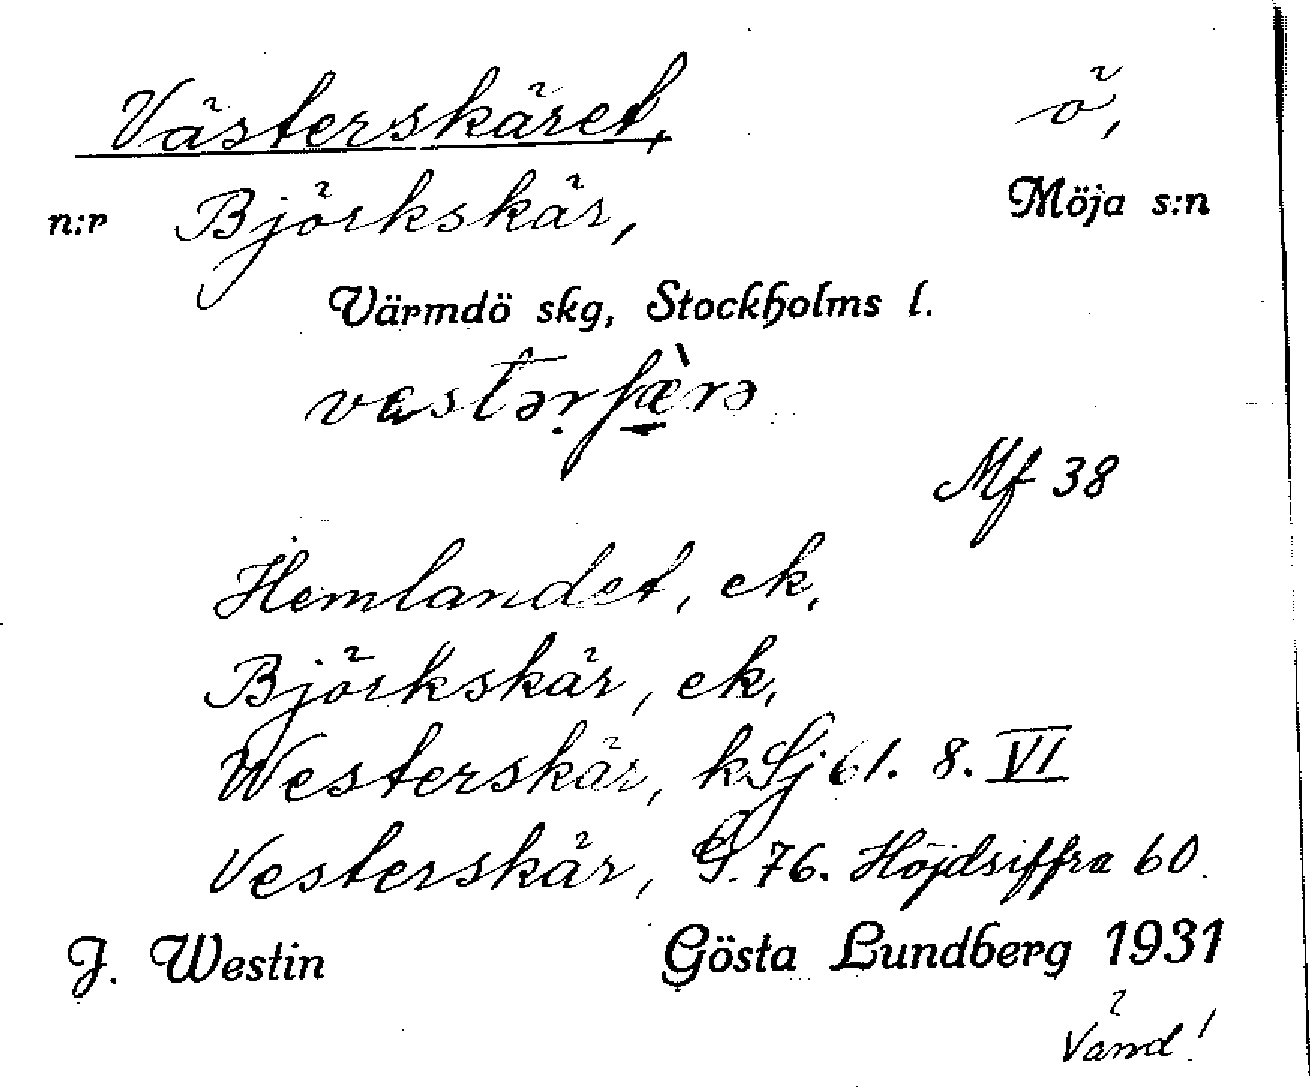 Västerskäret, ö,
n:r Björkskär, Möja s:n
Värmdö skg, Stockholms l.
Mf 38
Hemlandet, ek,
Björkskär, ek,
Westerskär, kSj 61. 8. VI
Vesterskär, G. 76. Höjdsiffra 60.
J. Westin Gösta Lundberg 1931
Vänd!